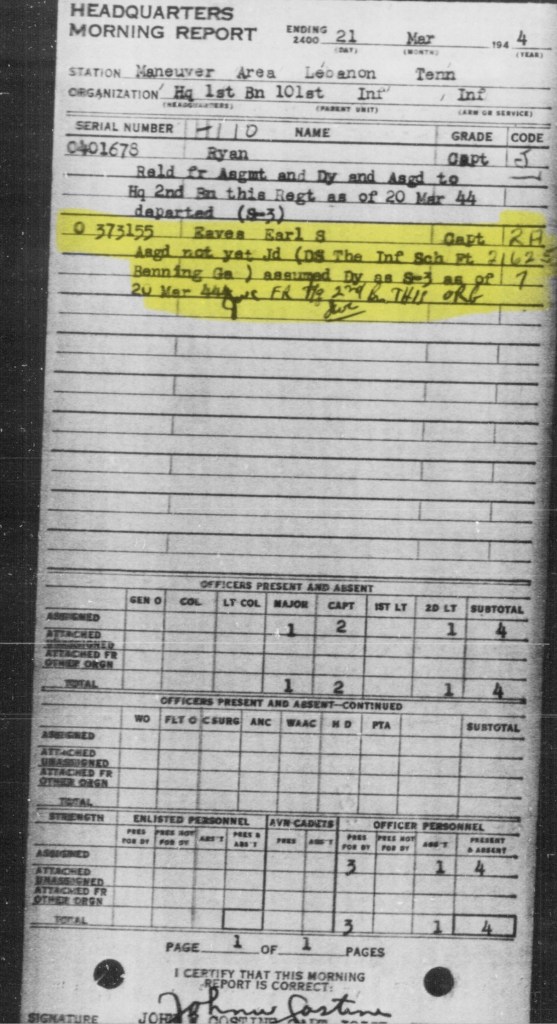 HEADQUARTERS
MORNING REPORT
ENDING 2400 21 Mar 194 4
(DAY) (MONTH) (YEAR)
STATION Maneuver Area Lebanon Tenn
ORGANIZATION Hq 1st Bn 101st Inf , Inf
(HEADQUARTERS) (PARENT UNIT) (ARM OR SERVICE)
SERIAL NUMBER NAME GRADE CODE
0401678 Ryan Capt J
Reld fr Asgmt and Dy and Asgd to
Hq 2nd Bn this Regt as of 20 Mar 44
departed (S-3)
O 373155 Eaves Earl S Capt 2A
Asgd not yet Jd (DS The Inf Sch Ft 21625
Benning Ga ) assumed Dy as S-3 as of 7
20 Mar 44 FR Hq 2nd Bn THIS ORG
OFFICERS PRESENT AND ABSENT
GEN O COL LT COL MAJOR CAPT 1ST LT 2D LT SUBTOTAL
ASSIGNED 1 2 1 4
ATTACHED UNASSIGNED
ATTACHED FR OTHER ORGN
TOTAL 1 2 1 4
OFFICERS PRESENT AND ABSENT—CONTINUED
WO FLT O C SURG ANC WAAC H D PTA SUBTOTAL
ASSIGNED
ATTACHED UNASSIGNED
ATTACHED FR OTHER ORGN
TOTAL
STRENGTH ENLISTED PERSONNEL AVN CADETS OFFICER PERSONNEL
PRES FOR DY PRES NOT FOR DY ABS'T PRES & ABS'T PRES ABS'T PRES FOR DY PRES NOT FOR DY ABS'T PRESENT & ABSENT
ASSIGNED 3 1 4
ATTACHED UNASSIGNED
ATTACHED FR OTHER ORGN
TOTAL 3 1 4
PAGE 1 OF 1 PAGES
I CERTIFY THAT THIS MORNING
REPORT IS CORRECT:
SIGNATURE